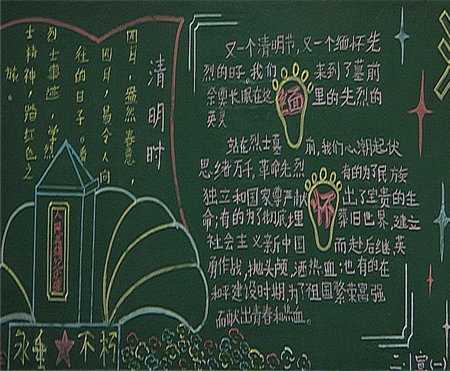 清明时
四月,盎然春意,
四月,最令人向
往的日子。看
烈士事迹,学烈
士精神,踏红色之
旅。
人民英雄永垂不朽
永垂★不朽
又一个清明节,又一个缅怀先
烈的日子。我们来到了墓前
祭奠长眠在这里的先烈的
英灵
缅
站在烈士墓前,我们心潮起伏
思绪万千,革命先烈有的为了民族
独立和国家尊严献出了宝贵的生
命;有的为了彻底埋葬旧世界,建立
社会主义新中国而赴后继,英
勇作战,抛头颅,洒热血;也有的在
和平建设时期,为了祖国繁荣富强
而献出青春和热血。
怀
二、宣(一